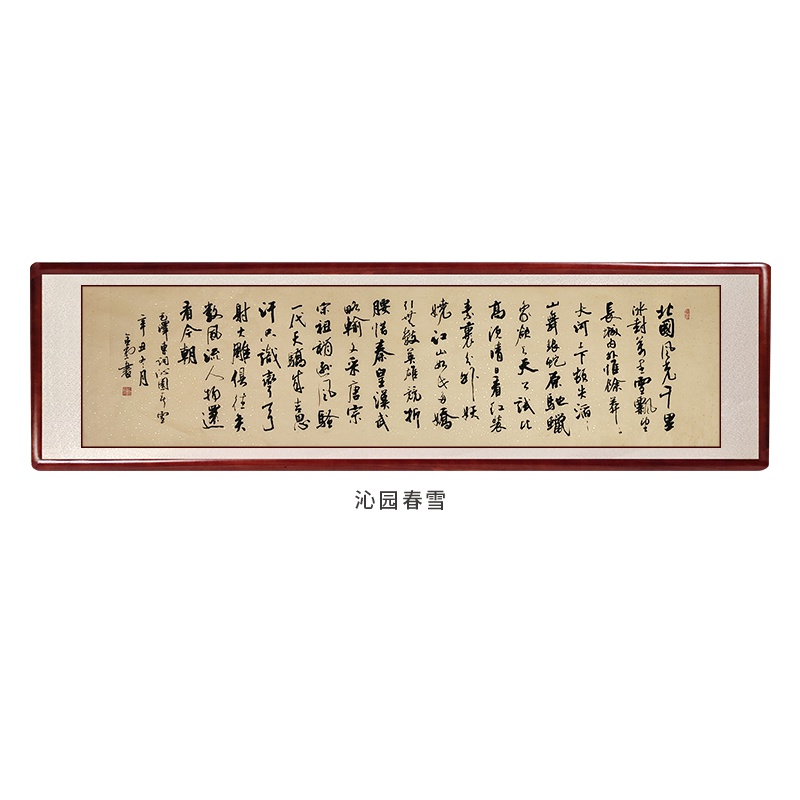 北國風光千里
冰封萬里雪飄望
長城内外惟餘莽〻
大河上下頓失滔〻
山舞銀蛇原馳蠟
象欲与天公試比
高須晴日看紅裝
素裹分外妖
嬈江山如此多嬌
引无數英雄競折
腰惜秦皇漢武
略輸文采唐宗
宋祖稍遜風騷
一代天驕成吉思
汗只識彎弓
射大雕俱往矣
數風流人物還
看今朝
毛澤東詞沁園春雪
辛丑十月
書
沁园春雪